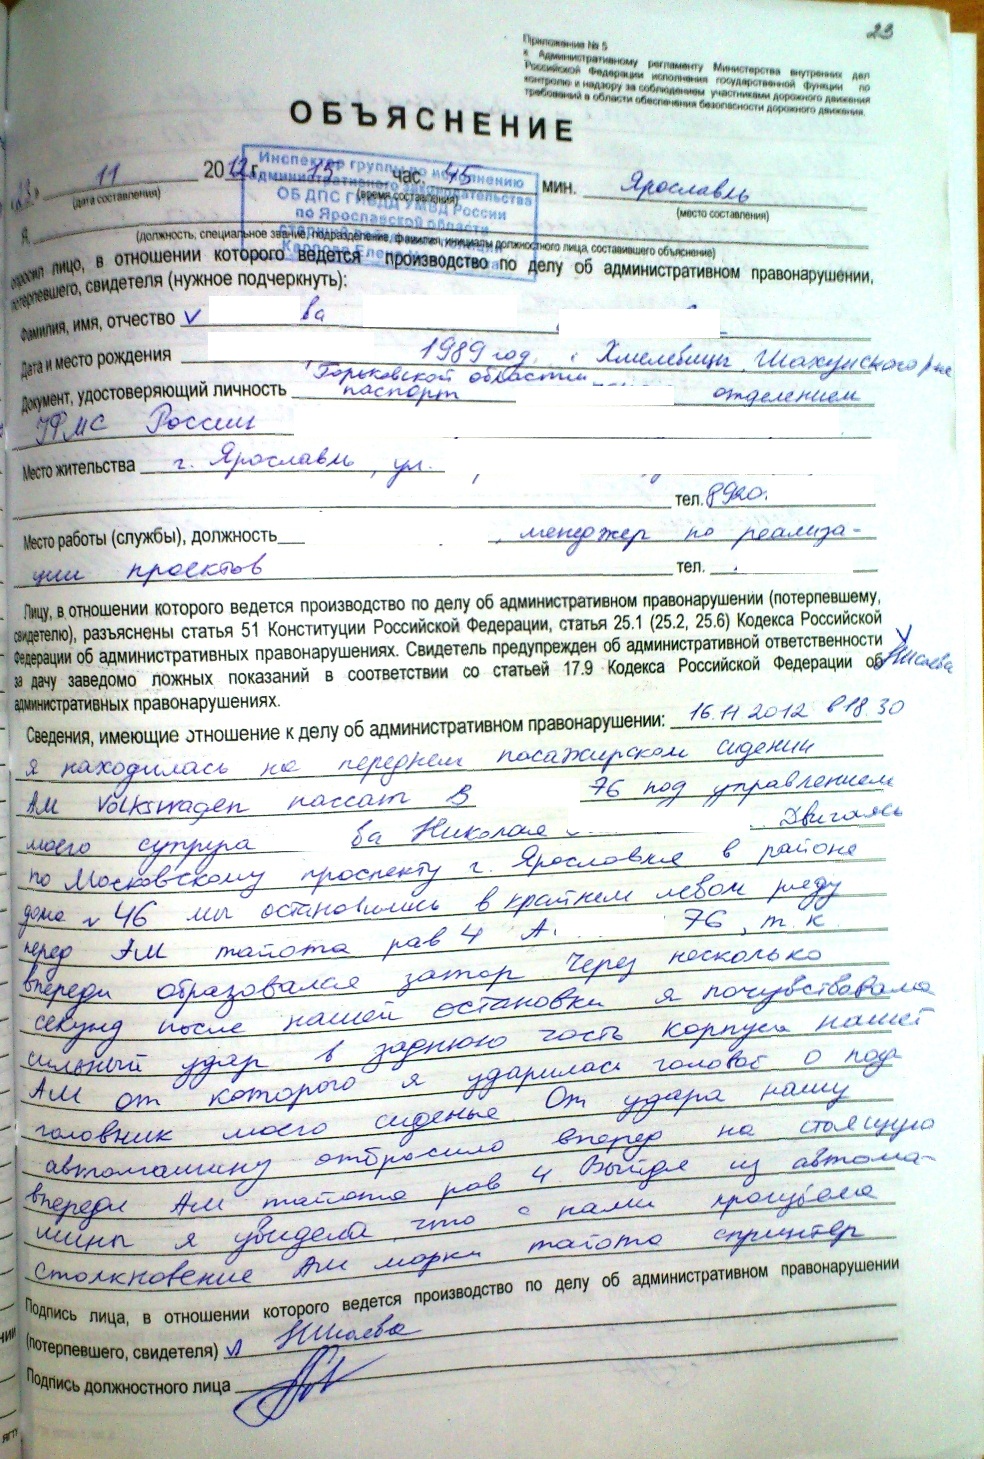 23
Приложение № 5
к Административному регламенту Министерства внутренних дел
Российской Федерации исполнения государственной функции по
контролю и надзору за соблюдением участниками дорожного движения
требований в области обеспечения безопасности дорожного движения.
ОБЪЯСНЕНИЕ
Инспектор группы по исполнению
административного законодательства
ОБ ДПС ГИБДД УМВД России
по Ярославской области
"23" 11 2012 г. 15 час. 45 мин. Ярославль
(дата составления) (время составления) (место составления)
Я,
(должность, специальное звание, подразделение, фамилия, инициалы должностного лица, составившего объяснение)
опросил лицо, в отношении которого ведется производство по делу об административном правонарушении,
потерпевшего, свидетеля (нужное подчеркнуть):
Фамилия, имя, отчество ва
Дата и место рождения 1989 год, Хмелевицы, Шахунского р-на
Горьковской области
Документ, удостоверяющий личность паспорт отделением
УФМС России
Место жительства г. Ярославль, ул.
тел. 8920
Место работы (службы), должность , менеджер по реализа-
ции проектов тел.
Лицу, в отношении которого ведется производство по делу об административном правонарушении (потерпевшему,
свидетелю), разъяснены статья 51 Конституции Российской Федерации, статья 25.1 (25.2, 25.6) Кодекса Российской
Федерации об административных правонарушениях. Свидетель предупрежден об административной ответственности
за дачу заведомо ложных показаний в соответствии со статьей 17.9 Кодекса Российской Федерации об
административных правонарушениях.
Сведения, имеющие отношение к делу об административном правонарушении: 16.11.2012 в 18.30
я находилась на переднем пасажирском сидении
АМ Volkswagen пассат В 76 под управлением
моего супруга ва Николая Двигаясь
по Московскому проспекту г. Ярославля в районе
дома № 46 мы остановились в крайнем левом ряду
перед АМ тайота рав 4 А 76, т.к.
впереди образовался затор Через несколько
секунд после нашей остановки я почувствовала
сильный удар в заднюю часть корпуса нашей
АМ от которого я ударилась головой о под
головник моего сиденье От удара нашу
автомашину отбросило вперед на стоящую
впереди АМ тайота рав 4 Выйдя из автома-
шины я увидела что с нами произвела
столкновение АМ марки тайота спринтер
Подпись лица, в отношении которого ведется производство по делу об административном правонарушении
(потерпевшего, свидетеля)
Подпись должностного лица